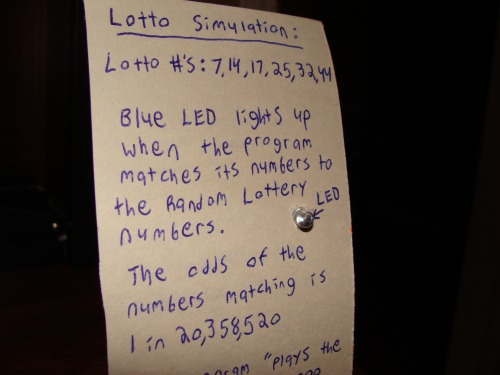 Lotto Simulation:
Lotto #'s: 7,14,17,25,32,44
Blue LED lights up
when the program
matches its numbers to
the Random Lottery
LED
numbers.
The odds of the
numbers matching is
1 in 20,358,520
"plays the